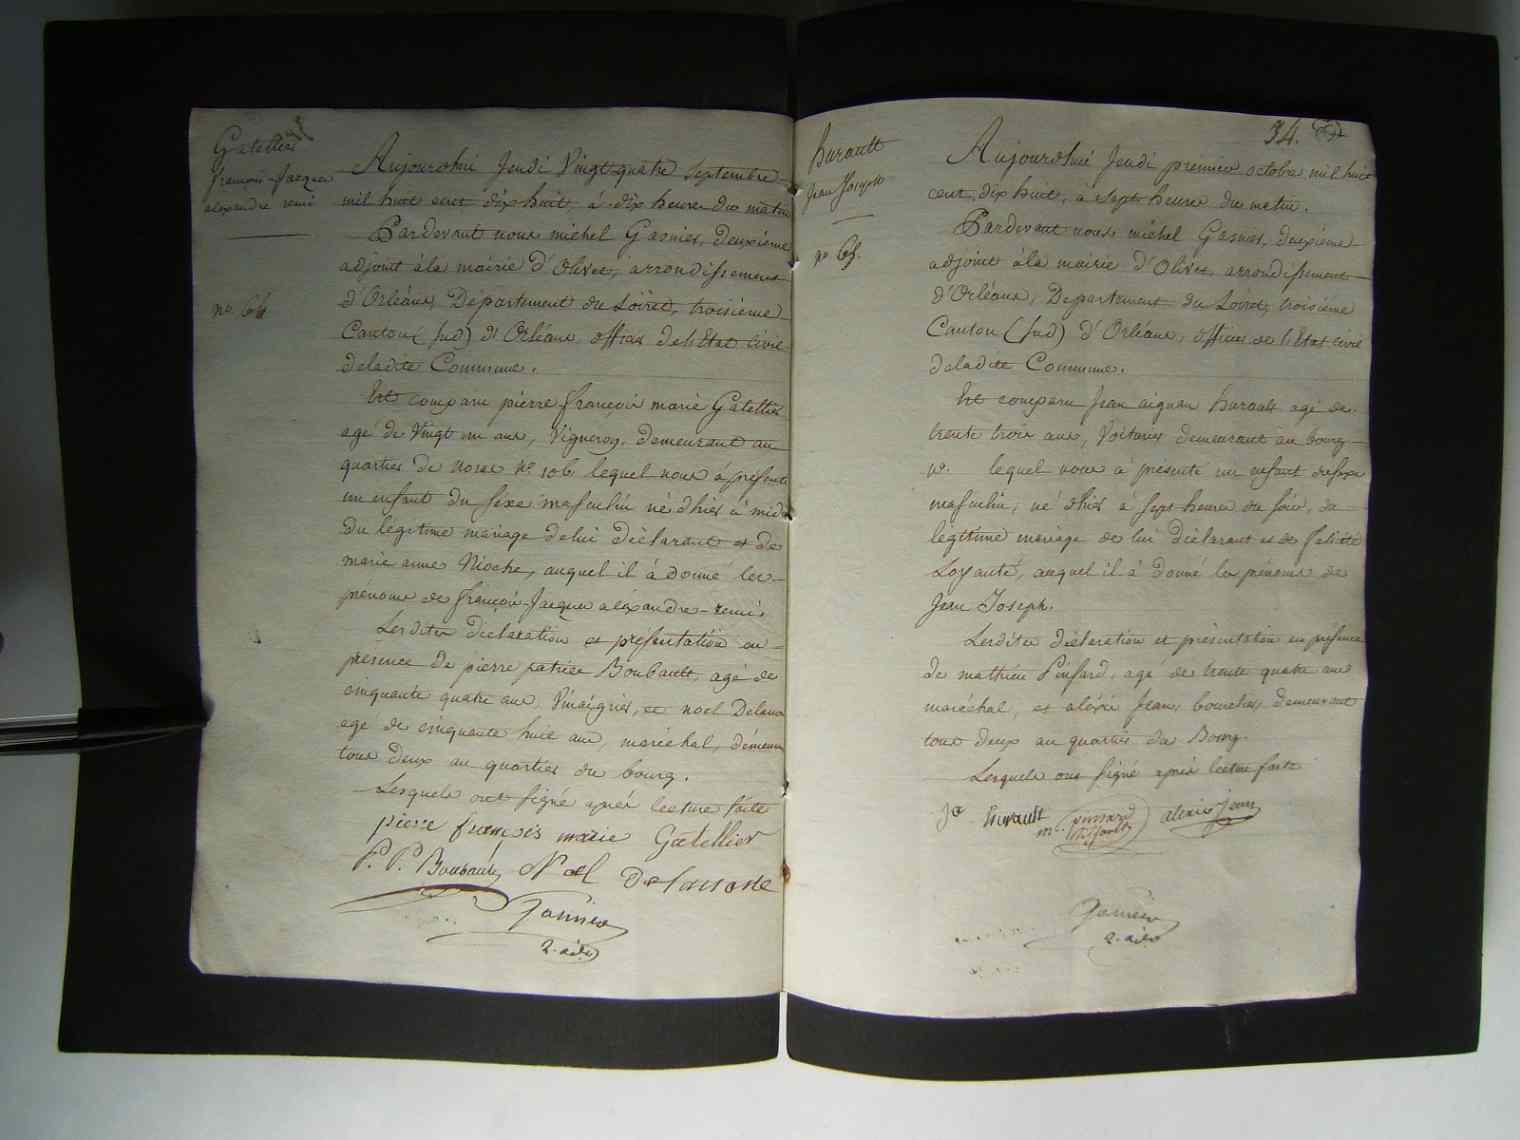 Gatellier
françois-Jacques
alexandre remi
no. 64
Aujourdhui Jeudi Vingt-quatre Septembre
mil huit cent dix huit, à dix heures du matin
Pardevant nous michel Gasnier, deuxième
adjoint à la mairie d'Olivet, arrondissement
d'Orléans, Département du Loiret, troisième
Canton (sud) d'Orléans, officier de l'Etat civil
deladite Commune.
Est comparu pierre françois marie Gatellier
agé de Vingt un ans, Vigneron, demeurant au
quartier de no. 106 lequel nous à présenté
un enfant du sexe masculin né d'hier à midi
du légitime mariage de lui déclarant et de
marie anne Rioche, auquel il à donné les
prénoms de françois-Jacques alexandre-remi.
Lesdites déclaration et présentation en
présence de pierre patrice Boubault, agé de
cinquante quatre ans, Vinaigrier, et noel Delanou
agé de cinquante huit ans, maréchal, démeurant
tous deux au quartier du bourg.
Lesquels ont signé après lecture faite
pierre françois marie Gatellier
P. P. Boubault Noel
Gasnier
2. adj.
34.
hurault
Jean Joseph
no 65.
Aujourdhui Jeudi premier octobre mil huit
cent dix huit, à sept heures du matin.
Pardevant nous michel Gasnier, deuxième
adjoint à la mairie d'Olivet, arrondissement
d'Orléans, Departement du Loiret, troisième
Canton (sud) d'Orléans, officier de l'Etat civil
deladite Commune.
Est comparu Jean aignan hurault agé de
trente trois ans, Voiturier demeurant au bourg
no. lequel nous à présenté un enfant du sexe
masculin, né d'hier à sept heures du soir, du
légitime mariage de lui déclarant et de félicité
Loyauté, auquel il à donné les prénoms de
Jean Joseph.
Lesdites déclaration et présentation en présence
de mathieu Pinsard, agé de trente quatre ans
maréchal, et aléxis Jean, bourelier, demeurant
tous deux au quartier du Bourg.
Lesquels ont signé après lecture faite
Ja hurault m. pinsard alexis jean
Gasnier
2. adj.